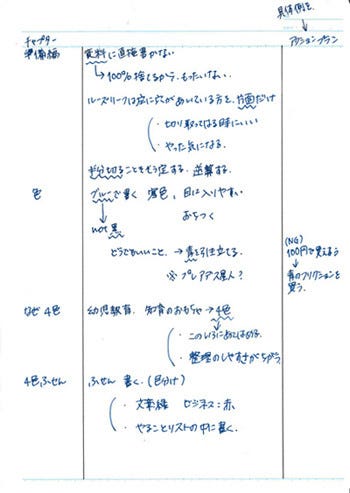 具体例を
チャプター
アクションプラン
準備編
資料に直接書かない
→100%捨てるから。もったいない。
ルーズリーフは左に穴があいている方を、片面だけ
・切り取ってはる時にいい
・やった気になる。
半分切ることもそう定する。逆算する。
色
ブルーで書く 寒色、目に入りやすい
おちつく
not 黒
どうでもいいこと。→青を引き立てる。
※プレアデス星人?
(NG)
100円で買えるよう
青のフリクションを
買う。
なぜ4色
幼児教育、知育のおもちゃ→4色
・このいろにあてはめる。
・整理のしやすさがちがう。
4色ふせん
ふせん 書く。(色分け)
・文章 ビジネス:赤
・やることリストの中に書く。